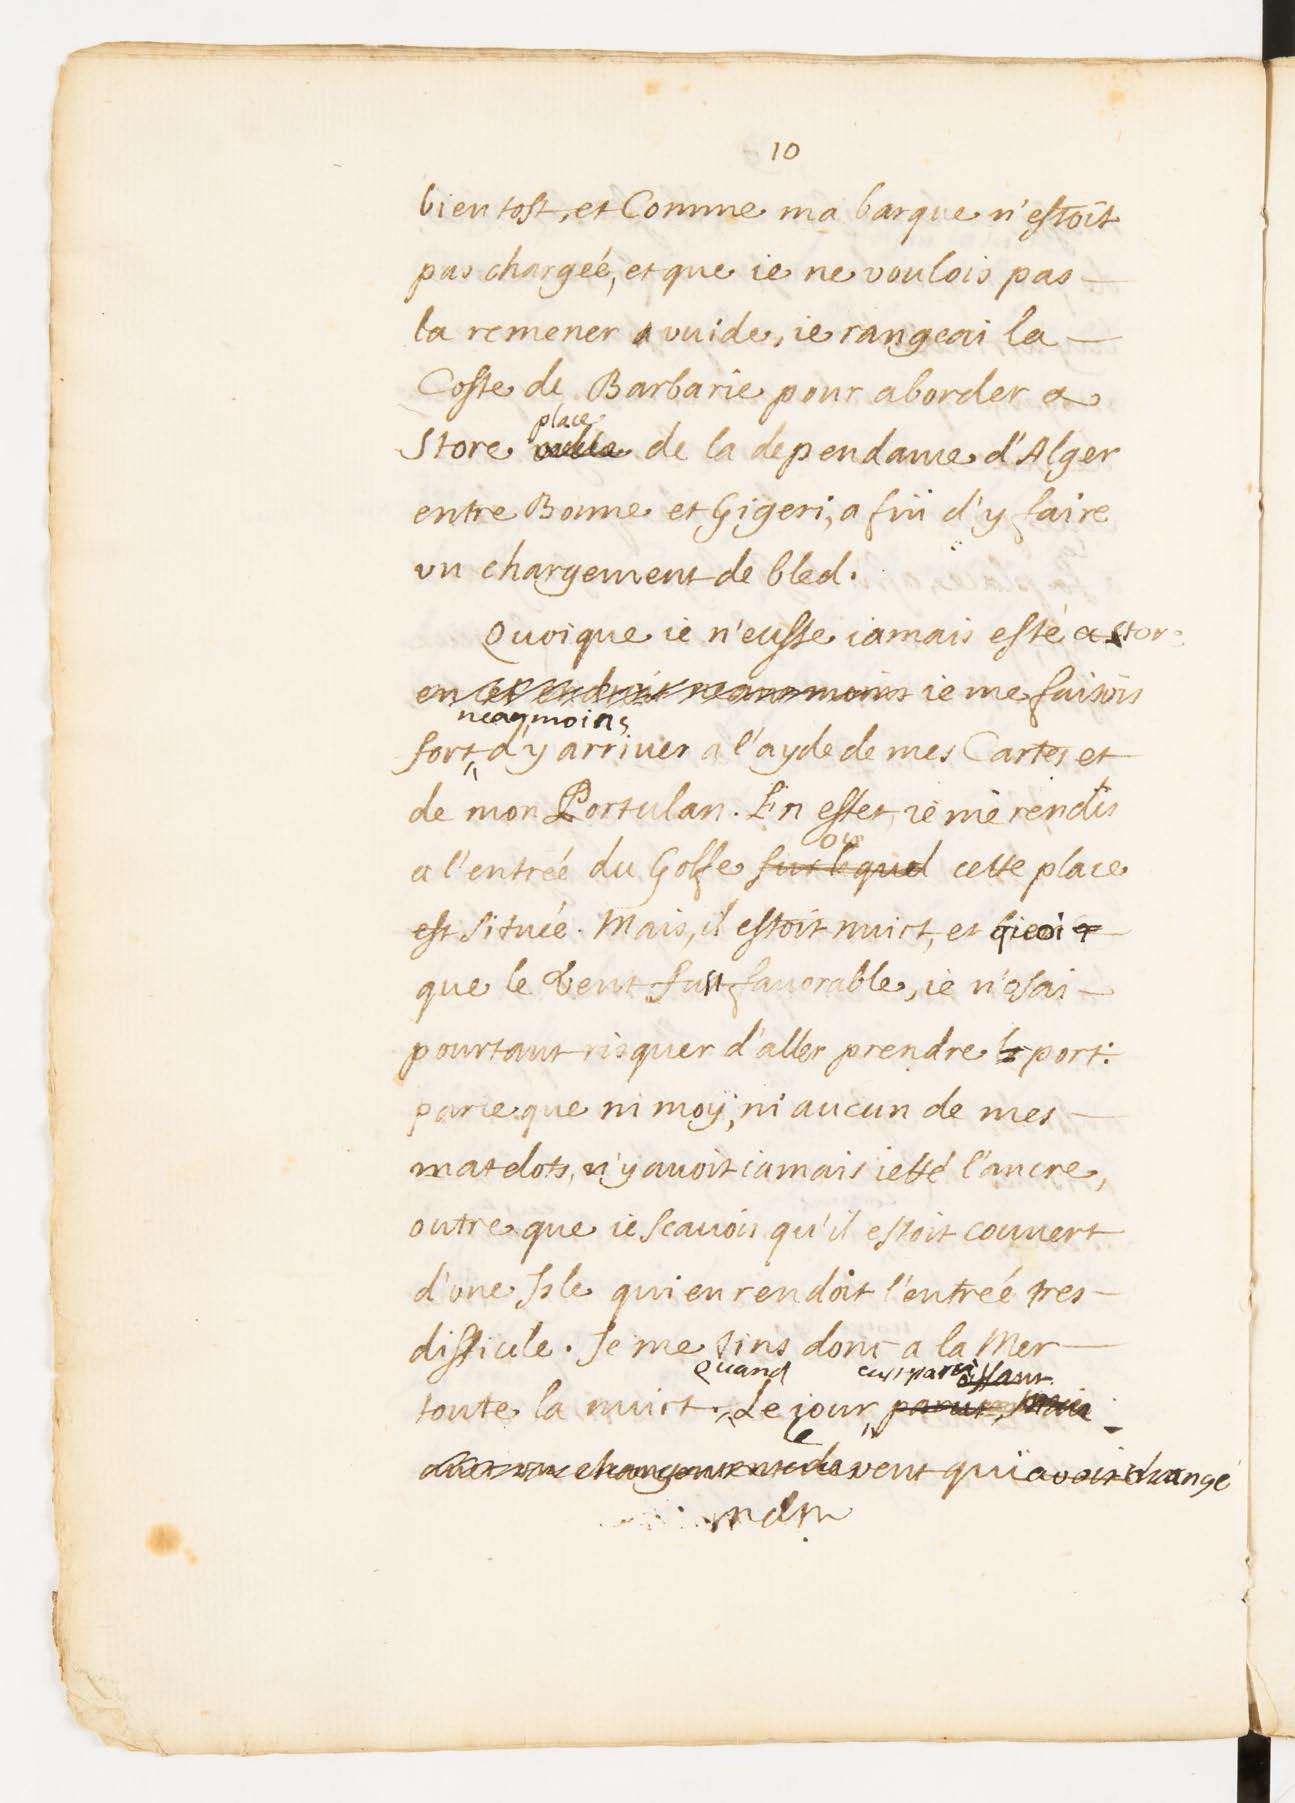 10
bien tost, et Comme ma barque n'estoit
pas chargéé, et que ie ne voulois pas
la remener a vuide, ie rangeai la
Coste de Barbarie pour aborder a
place
Store ville de la dependance d'Alger
entre Bonne et Gigeri, a fin d'y faire
vn chargement de bled.
Quoique ie n'eusse iamais esté a Store
en cet endroit neanmoins ie me faisois
neanmoins
fort d'y arriuer a l'ayde de mes Cartes et
de mon Portulan. En effet, ie me rendis
ou
a l'entréé du Golfe sur lequel cette place
est situéé. Mais, il estoit nuict, et quoi
que le vent fust favorable, ie n'osai
pourtant risquer d'aller prendre le port:
parce que ni moy, ni aucun de mes
matelots, n'y auoit iamais ietté l'ancre,
outre que ie scauois qu'il estoit couuert
d'vne Isle qui en rendoit l'entréé tres
difficile. Je me tins donc a la Mer
Quand
toute la nuict. Le iour, parut, Mais
le
auec vn changement de vent qui avoit changé